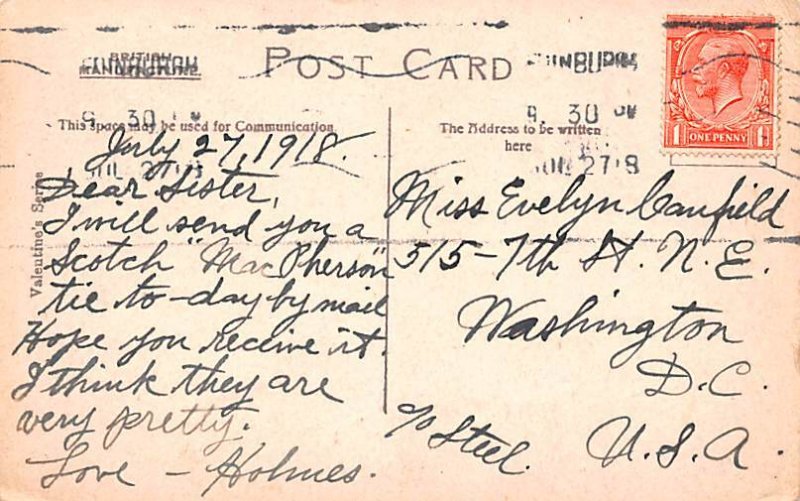 POST CARD
BRITISH
MANUFACTURE
EDINBURGH
9. 30 PM
EDINBURGH
9. 30 PM
27 18
This space may be used for Communication
The Address to be written
here
Valentine's Series
ONE PENNY
July 27, 1918.
Dear Sister,
I will send you a
Scotch "MacPherson"
tie to-day by mail
Hope you receive it.
I think they are
very pretty.
Love – Holmes.
Miss Evelyn Canfield
515-7th St. N. E.
Washington
D.C.
c/o Steel. U.S.A.